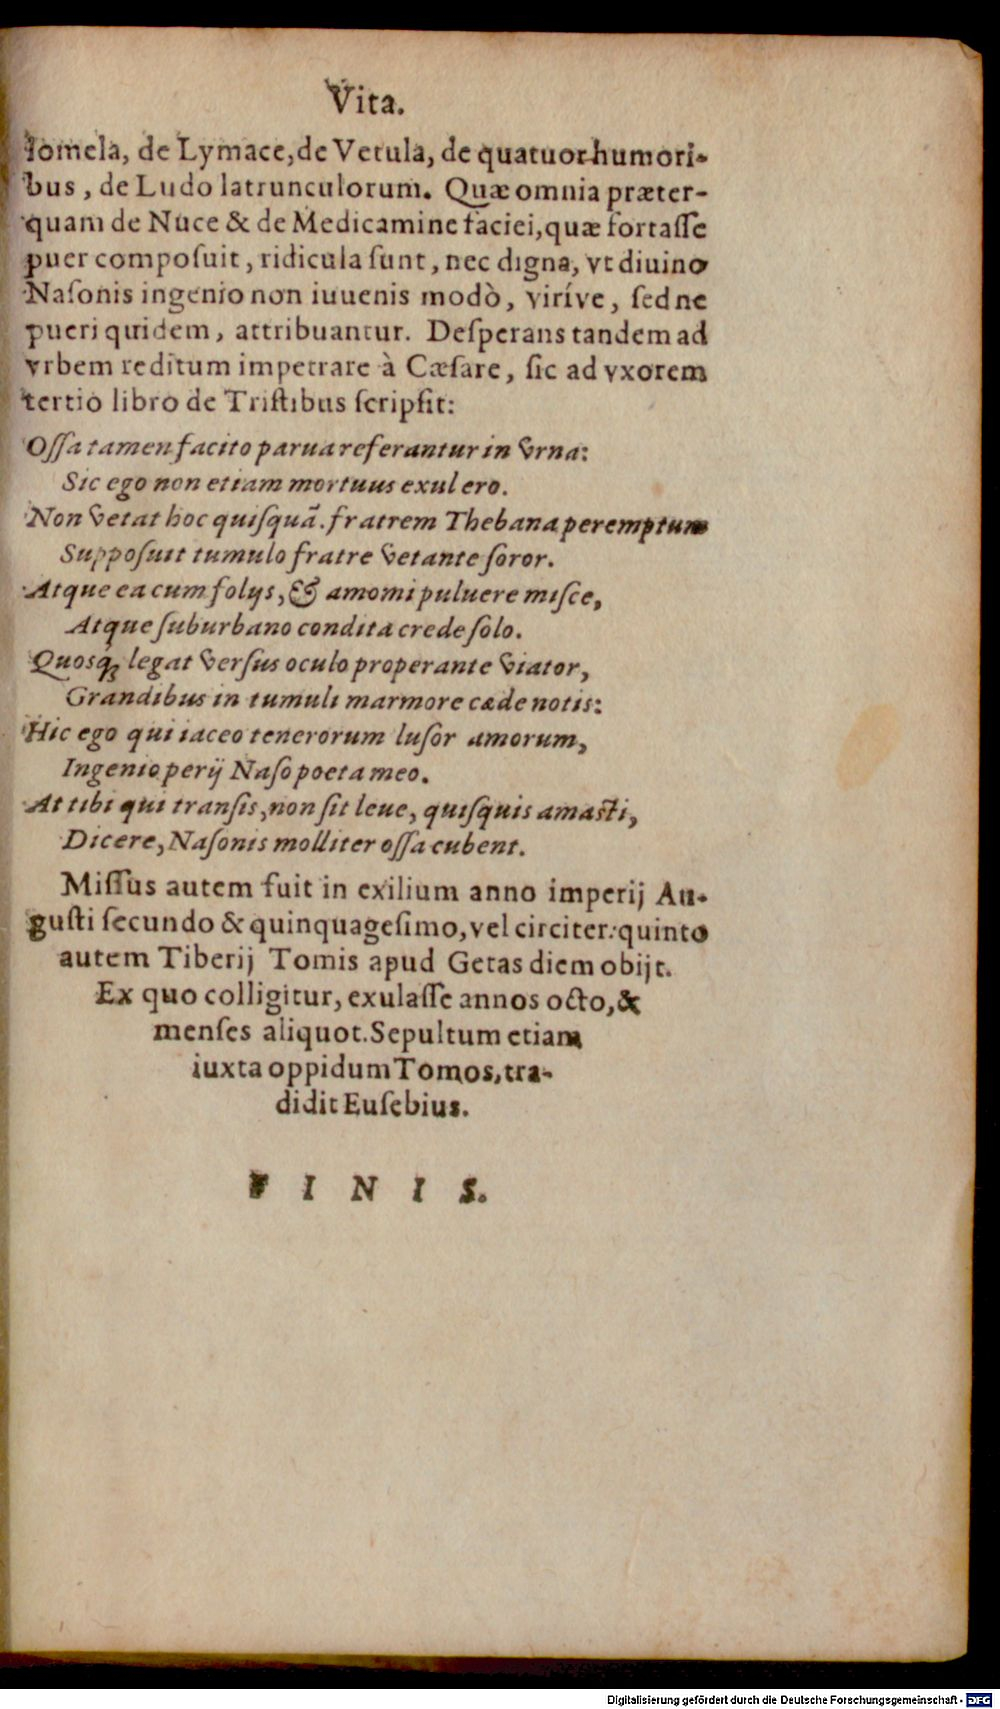 Vita.
lomela, de Lymace, de Vetula, de quatuor humori-
bus, de Ludo latrunculorum. Quæ omnia præter-
quam de Nuce & de Medicamine faciei, quæ fortaſſe
puer compoſuit, ridicula ſunt, nec digna, vt diuino
Naſonis ingenio non iuuenis modò, viríve, ſed ne
pueri quidem, attribuantur. Deſperans tandem ad
vrbem reditum impetrare à Cæſare, ſic ad vxorem
tertio libro de Triſtibus ſcripſit:
Oſſa tamen facito parua referantur in vrna:
Sic ego non etiam mortuus exul ero.
Non vetat hoc quiſquā. fratrem Thebana peremptum
Suppoſuit tumulo fratre vetante ſoror.
Atque ea cum folijs, & amomi puluere miſce,
Atque ſuburbano condita crede ſolo.
Quosq; legat verſus oculo properante viator,
Grandibus in tumuli marmore cæde notis:
Hic ego qui iaceo tenerorum luſor amorum,
Ingenio perij Naſo poeta meo.
At tibi qui tranſis, non ſit leue, quiſquis amaſti,
Dicere, Naſonis molliter oſſa cubent.
Miſſus autem fuit in exilium anno imperij Au-
guſti ſecundo & quinquageſimo, vel circiter: quinto
autem Tiberij Tomis apud Getas diem obijt.
Ex quo colligitur, exulaſſe annos octo, &
menſes aliquot. Sepultum etiam
iuxta oppidum Tomos, tra-
didit Euſebius.
F I N I S.
Digitalisierung gefördert durch die Deutsche Forschungsgemeinschaft - DFG